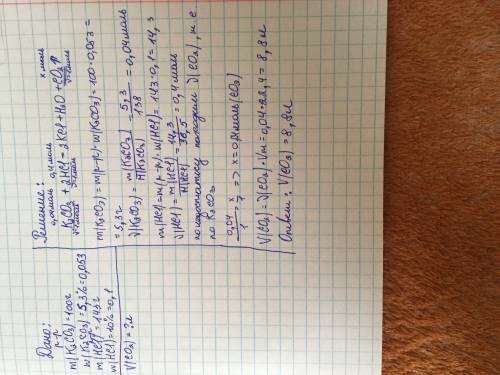 Дано:
m(K₂CO₃) р-р = 100г
w(K₂CO₃) = 5,3% = 0,053
m(HCl) р-р = 143г
w(HCl) = 10% = 0,1
V(CO₂) = ? л
Решение:
0,04моль 0,4моль x моль
K₂CO₃ + 2HCl = 2KCl + H₂O + CO₂↑
m(K₂CO₃) = m(р-р) · w(K₂CO₃) = 100 · 0,053 =
= 5,3г
ν(K₂CO₃) = m(K₂CO₃) / M(K₂CO₃) = 5,3 / 138 = 0,04моль
m(HCl) = m(р-р) · w(HCl) = 143 · 0,1 = 14,3
ν(HCl) = m(HCl) / M(HCl) = 14,3 / 36,5 = 0,4 моль
по недостатку находим ν(CO₂), т.е.
по K₂CO₃
0,04 / 1 = x / 1 => x = 0,04моль (CO₂)
V(CO₂) = ν(CO₂) · Vm = 0,04 · 22,4 = 8,8л
Ответ: V(CO₂) = 8,8л